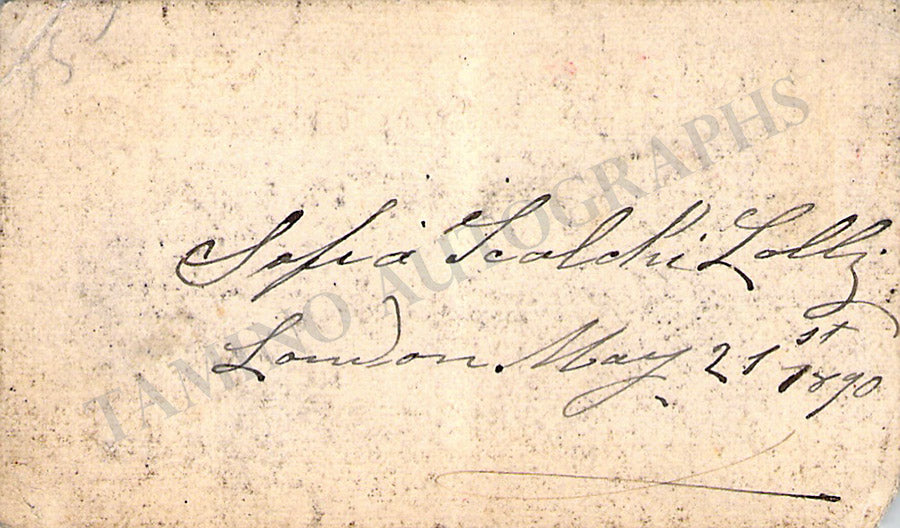 Sofia Scalchi Lolli
London. May 21st 1890
TAMINO AUTOGRAPHS